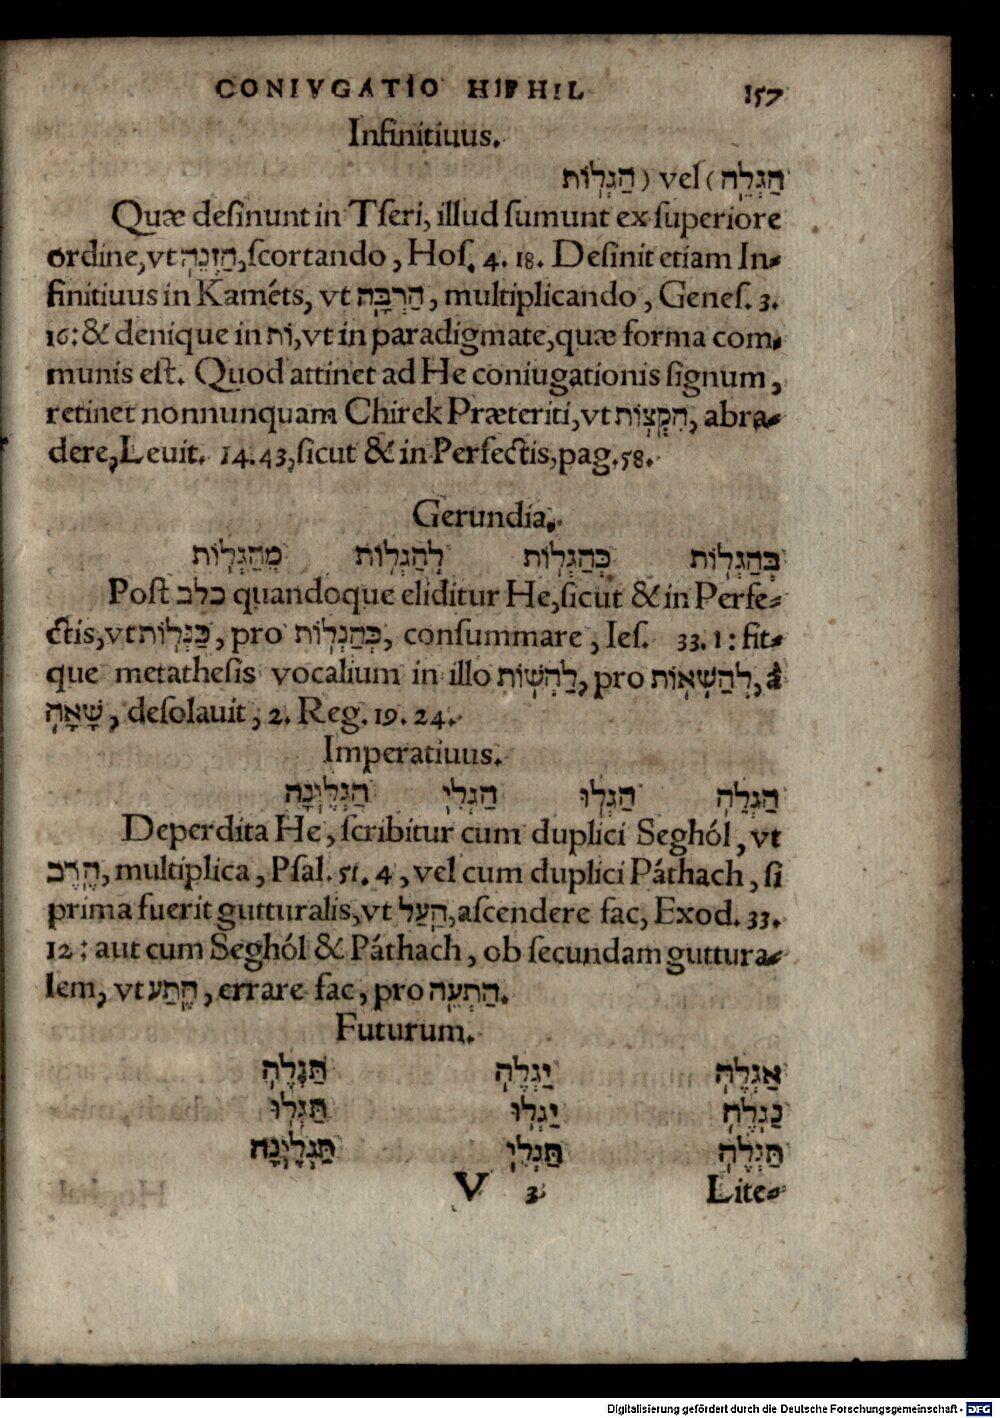 CONIVGATIO HIPHIL 157
Infinitiuus.
הַגְלֵה) vel (הַגְלוֹת
Quæ desinunt in Tseri, illud sumunt ex superiore
ordine, vt הַזְנֵה, scortando, Hos. 4. 18. Desinit etiam In-
finitiuus in Kaméts, vt הַרְבָּה, multiplicando, Genes. 3.
16: & denique in וֹת, vt in paradigmate, quæ forma com-
munis est. Quod attinet ad He coniugationis signum,
retinet nonnunquam Chirek Præteriti, vt הִקְצוֹת, abra-
dere, Leuit. 14. 43, sicut & in Perfectis, pag. 58.
Gerundia.
בְּהַגְלוֹת כְּהַגְלוֹת לְהַגְלוֹת מֵהַגְלוֹת
Post כלב quandoque eliditur He, sicut & in Perfe-
ctis, vt כַּנְלוֹת, pro כְּהַנְלוֹת, consummare, Ies. 33. 1: fit-
que metathesis vocalium in illo לַהְשׁוֹת, pro לְהַשְׁאוֹת, à
שָׁאָה, desolauit, 2. Reg. 19. 24.
Imperatiuus.
הַגְלֵה הַגְלוּ הַגְלִי הַגְלֶינָה
Deperdita He, scribitur cum duplici Seghól, vt
הֶרֶב, multiplica, Psal. 51. 4, vel cum duplici Páthach, si
prima fuerit gutturalis, vt הַעַל, ascendere fac, Exod. 33.
12: aut cum Seghól & Páthach, ob secundam guttura-
lem, vt הֶתַע, errare fac, pro הַתְעֵה.
Futurum.
אַגְלֶה יַגְלֶה תַּגְלֶה
נַגְלֶה יַגְלוּ תַּגְלוּ
תַּגְלֶה תַּגְלִי תַּגְלֶינָה
V 3 Lite-
Digitalisierung gefördert durch die Deutsche Forschungsgemeinschaft - DFG